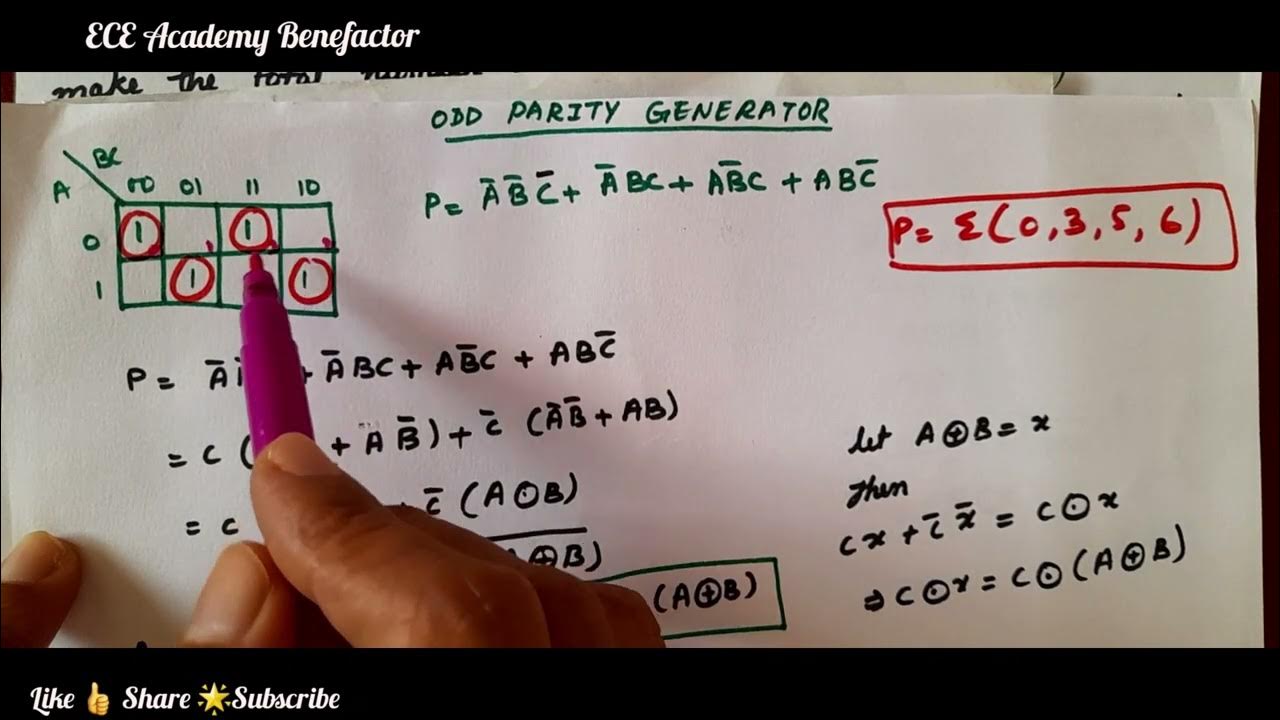 ECE Academy Benefactor
make the total
ODD PARITY GENERATOR
BC
A 00 01 11 10
0 1 1
1 1 1
P = A̅ B̅ C̅ + A̅ BC + AB̅C + ABC̅
P = Σ(0,3,5,6)
P = A̅ + A̅ BC + AB̅C + ABC̅
= C ( + A B̅) + C̅ (A̅B̅ + AB)
= C + C̅ (A⊙B)
⊕B)
(A⊕B)
let A⊕B = x
Then
cx + c̅ x̅ = c⊙x
⇒ c⊙x = c⊙(A⊕B)
Like 👍 Share 🌟Subscribe